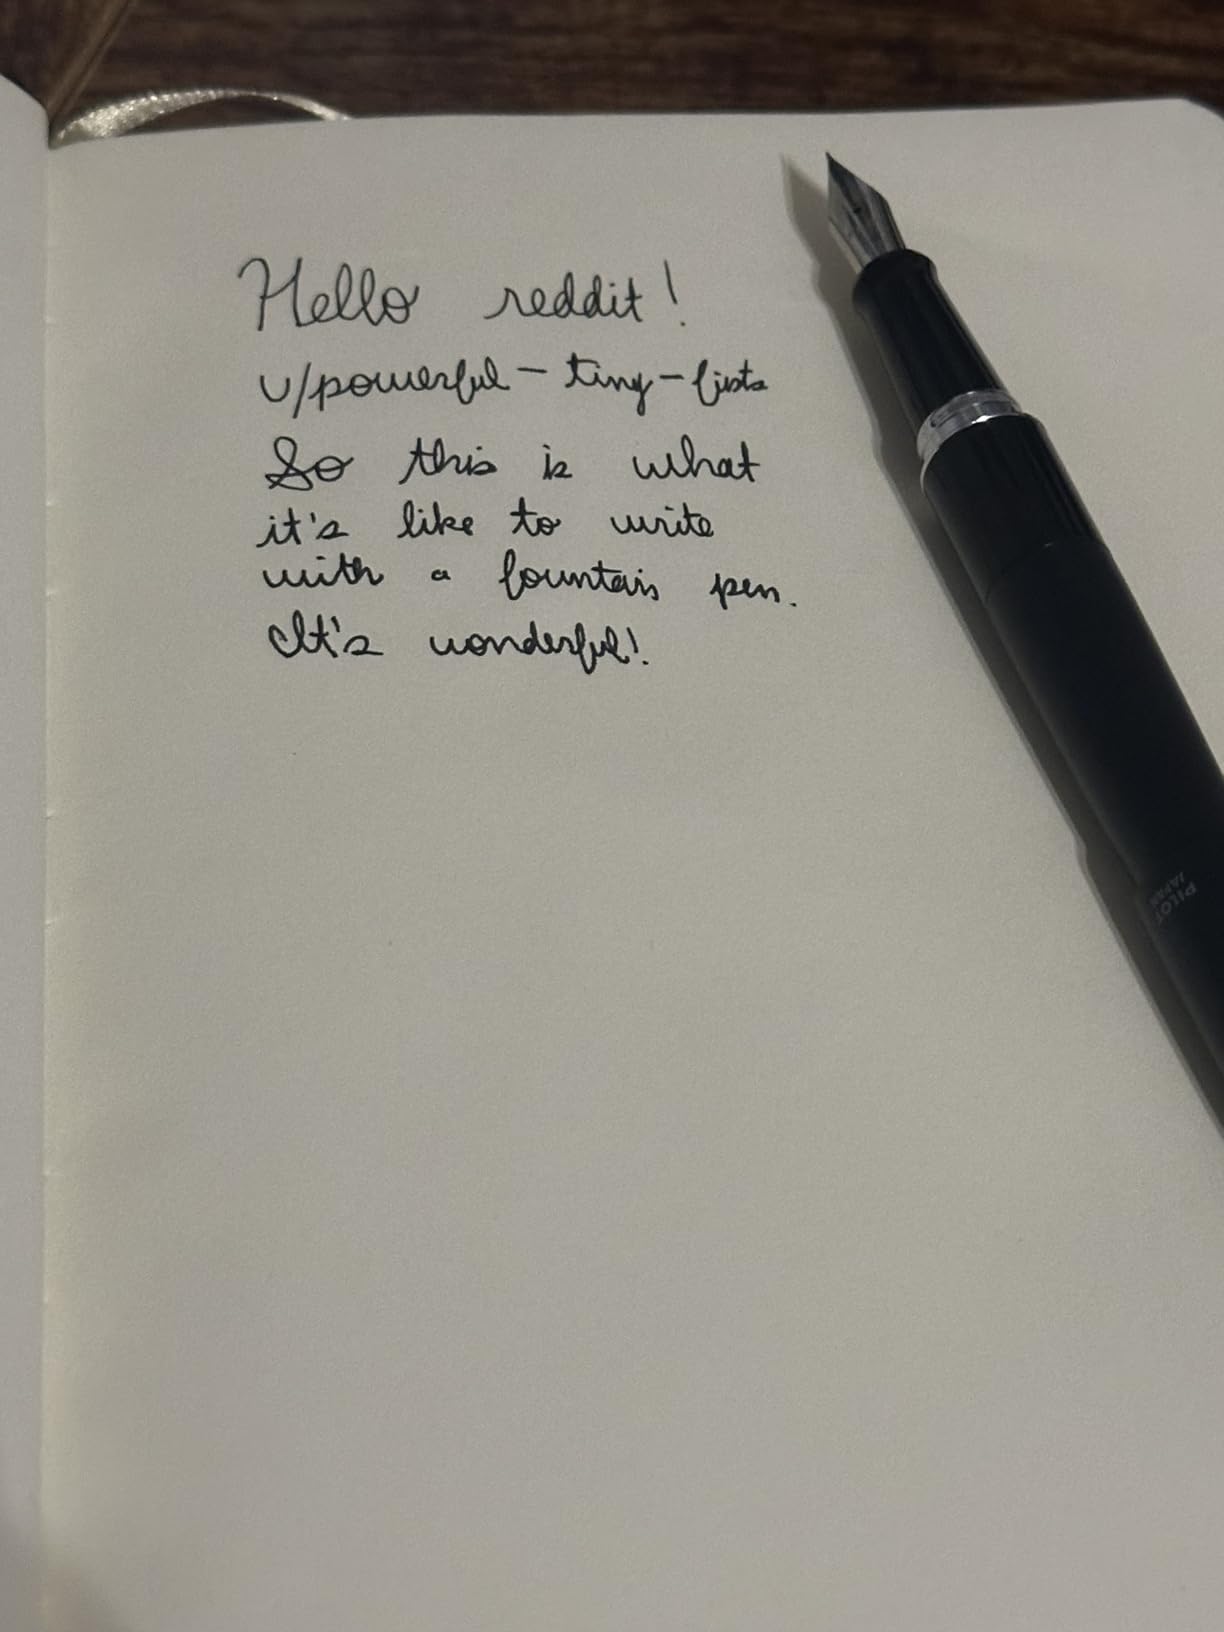 Hello reddit!
u/powerful-tiny-fists
So this is what
it's like to write
with a fountain pen.
It's wonderful!
PILOT
JAPAN